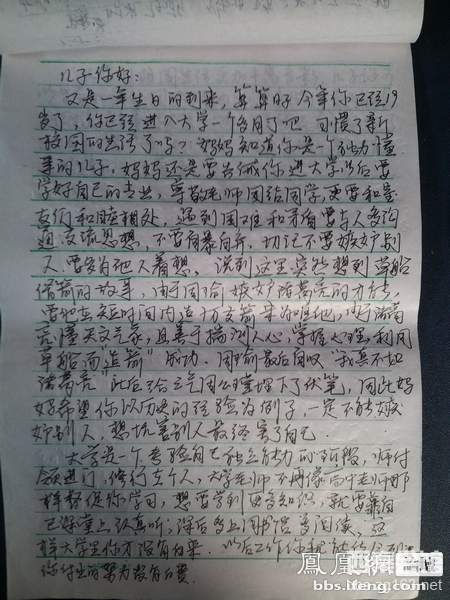 儿子你好:
又是一年生日的到来,算算时今年你已经19
岁了,你已经进入大学一个多月了吧 习惯了新
校园的生活了吗?妈妈知道你是一个独力懂
事的儿子,妈妈还是要告诫你进大学以后要
学好自己的专业,尊敬老师团结同学更要和室
友们和睦相处,遇到困难和矛盾要与人多沟
通,交流思想,不要自暴自弃,切记不要嫉妒别
人,要多为他人着想,说到这里突然想到草船
借箭的故事,由于周瑜嫉妒诸葛亮的才能,
要他在短时间内造十万支箭来难为他,由于诸葛
亮懂天文气象,且善于揣测人心,掌握心理,利用
草船而“造箭”成功。周瑜最后自叹“我真不如
诸葛亮”此后三气周公瑾埋下了伏笔,因此妈
妈希望你以历史的经验为例子,一定不能嫉
妒别人,想坑害别人最终害了自己。
大学是一个考验自己独立能力的阶段,师付
领进门,修行在个人,大学老师不再像高中老师那
样督促你学习,想要学到更多知识,就要靠自
己课堂上认真听,课后多上图书馆多阅读,这
样大学里你才没有白来,以后工作
你付出的努力没有白费。
凤凰网论坛
bbs.ifeng.com